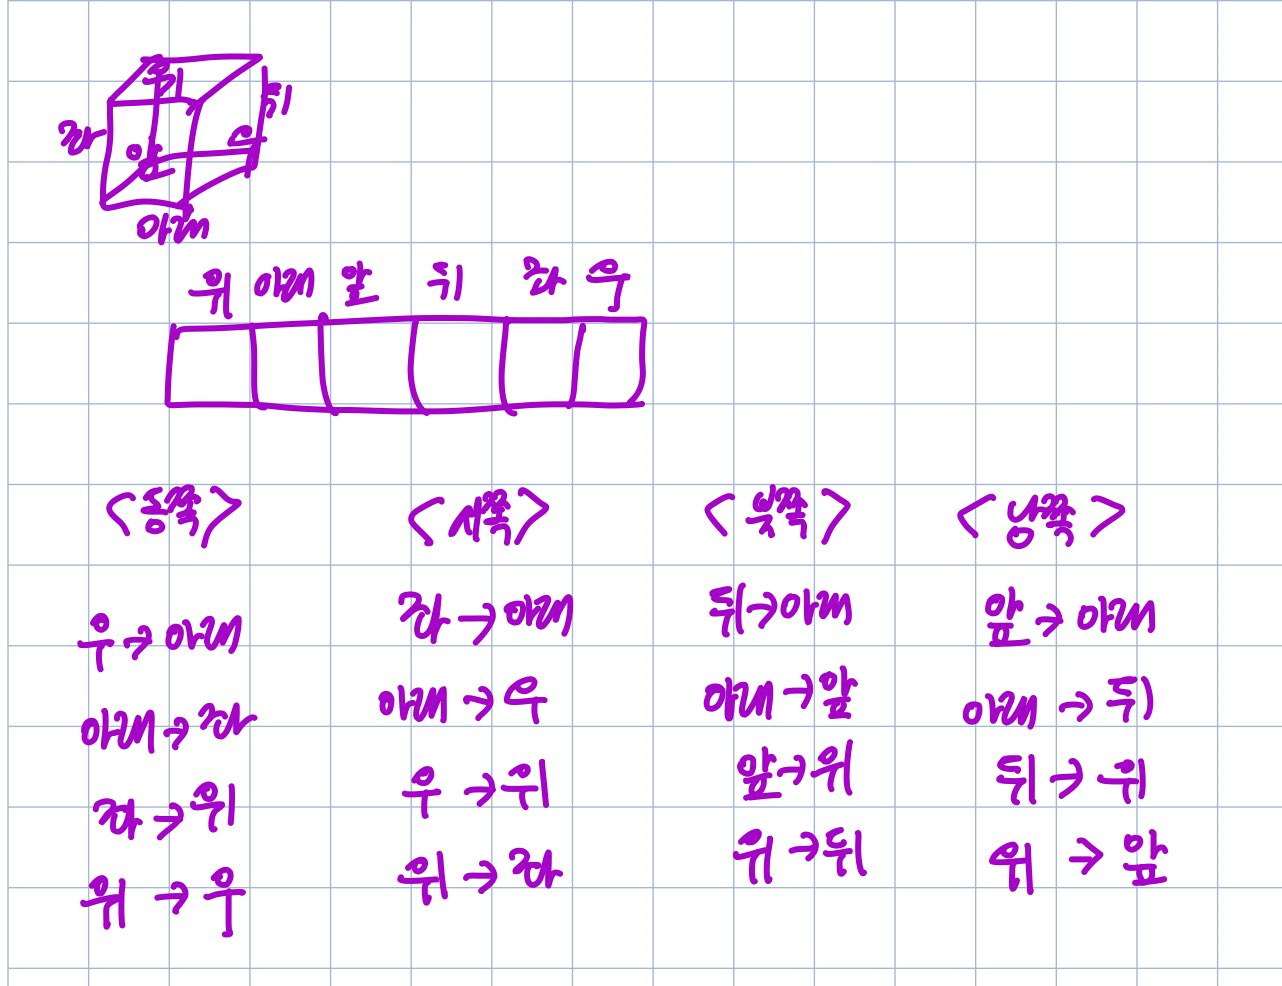 위
뒤
좌
우
앞
아래
위 아래 앞 뒤 좌 우
<동쪽> <서쪽> <북쪽> <남쪽>
우→아래 좌→아래 뒤→아래 앞→아래
아래→좌 아래→우 아래→앞 아래→뒤
좌→위 우→위 앞→위 뒤→위
위→우 위→좌 위→뒤 위→앞